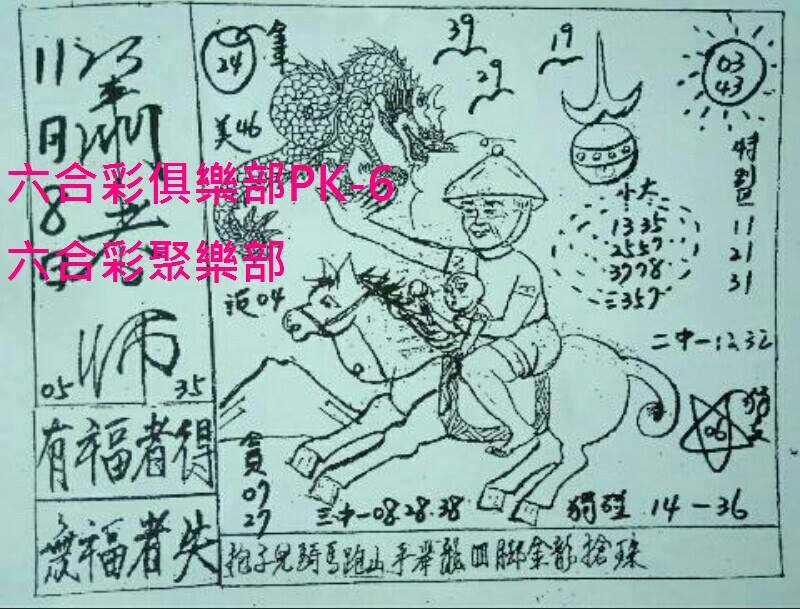 11日8日
老師
六合彩俱樂部PK-6
六合彩聚樂部
05 35
有福者得
無福者失
24
美46
04
39
29
19
03
43
特別
11
21
31
小大
1335
2557
3778
三357
二中一12.32
06
會員
07
27
三中一08.28.38
獨碰 14-36
抱子兒騎馬跑山手舉龍四腳金龍搶珠